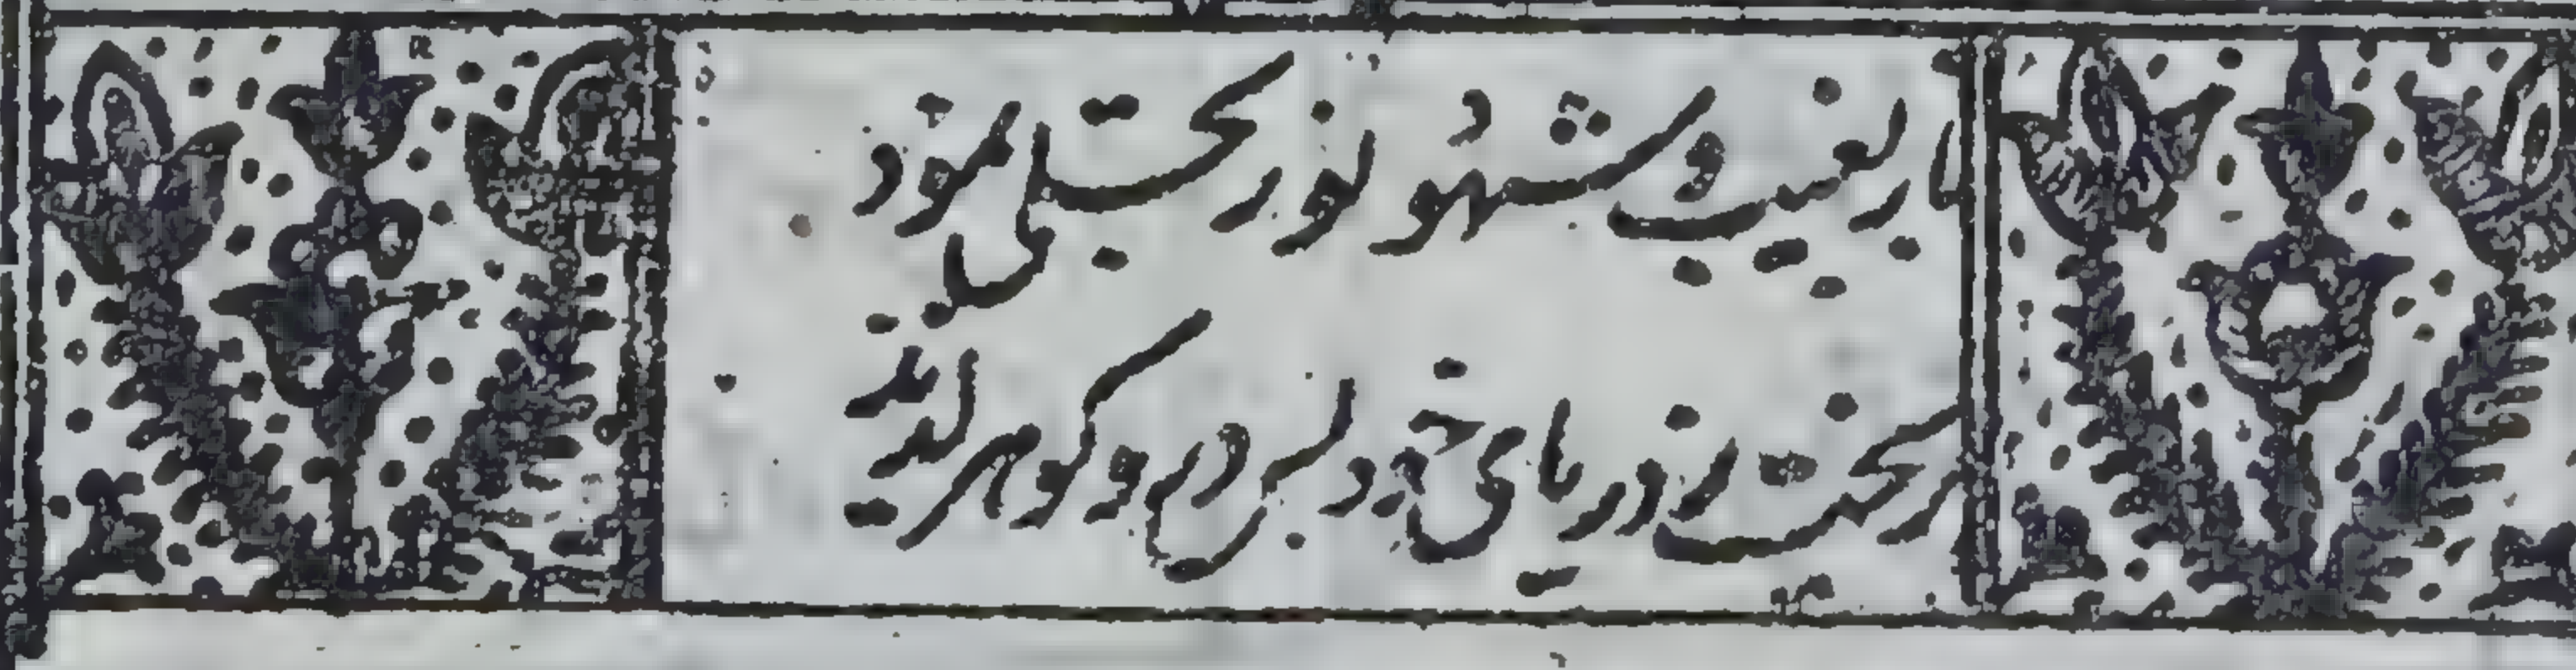 از بغیب و شهود نور تجلی نمود
ریخت ز دریای جود لس در و گوهر پدید